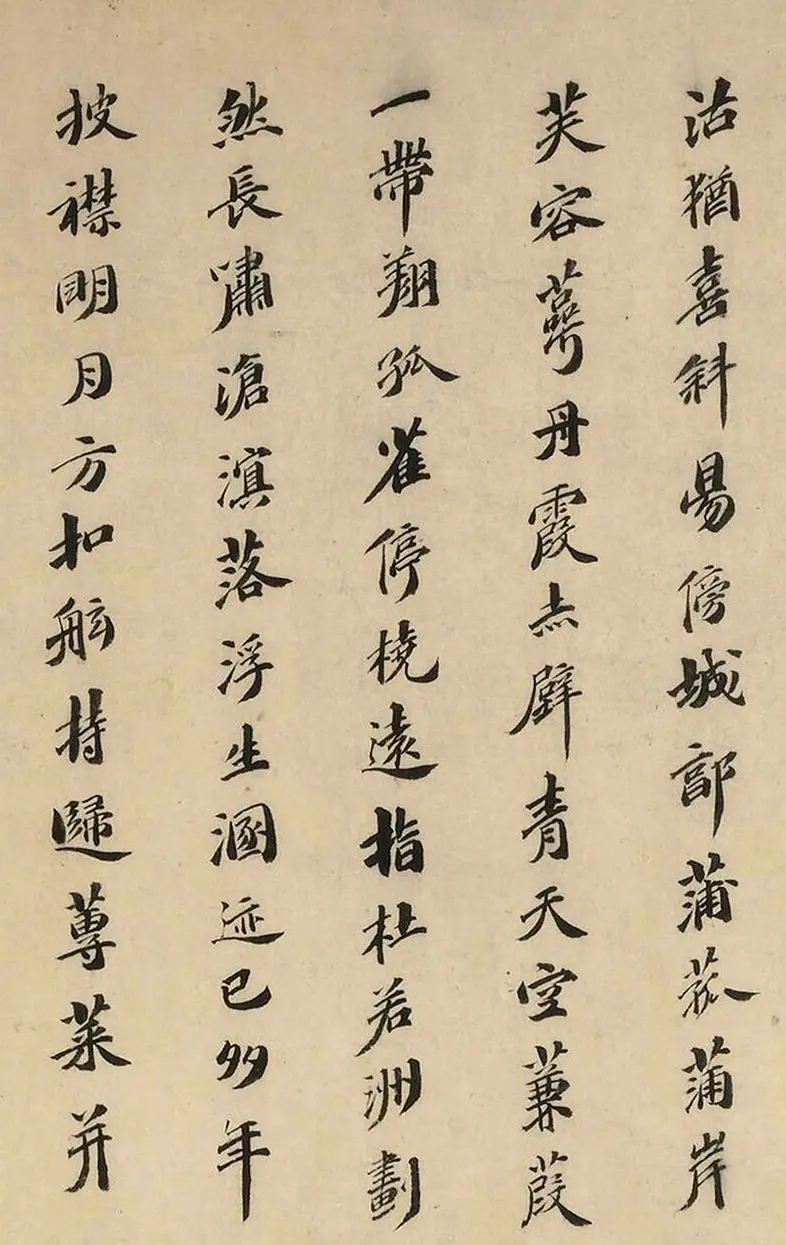 沾猶喜斜昜傍城郭蒲菰蒲岸
芙容萼丹霞赤壁青天空蒹葭
一帶翔孤雀停橈遠指杜若洲劃
然長嘯滄溟落浮生溷迹已多年
披襟明月方扣舷持歸蓴菜并